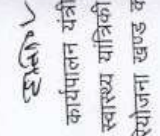 कार्यपालन यंत्री
स्वास्थ्य यांत्रिकी
योजना खण्ड